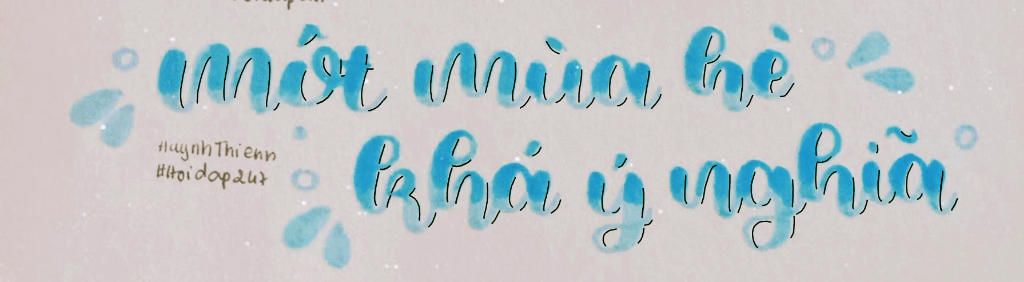 mớt mùa hè
HuynhThienn
khá ý nghĩa
#Hoidap247